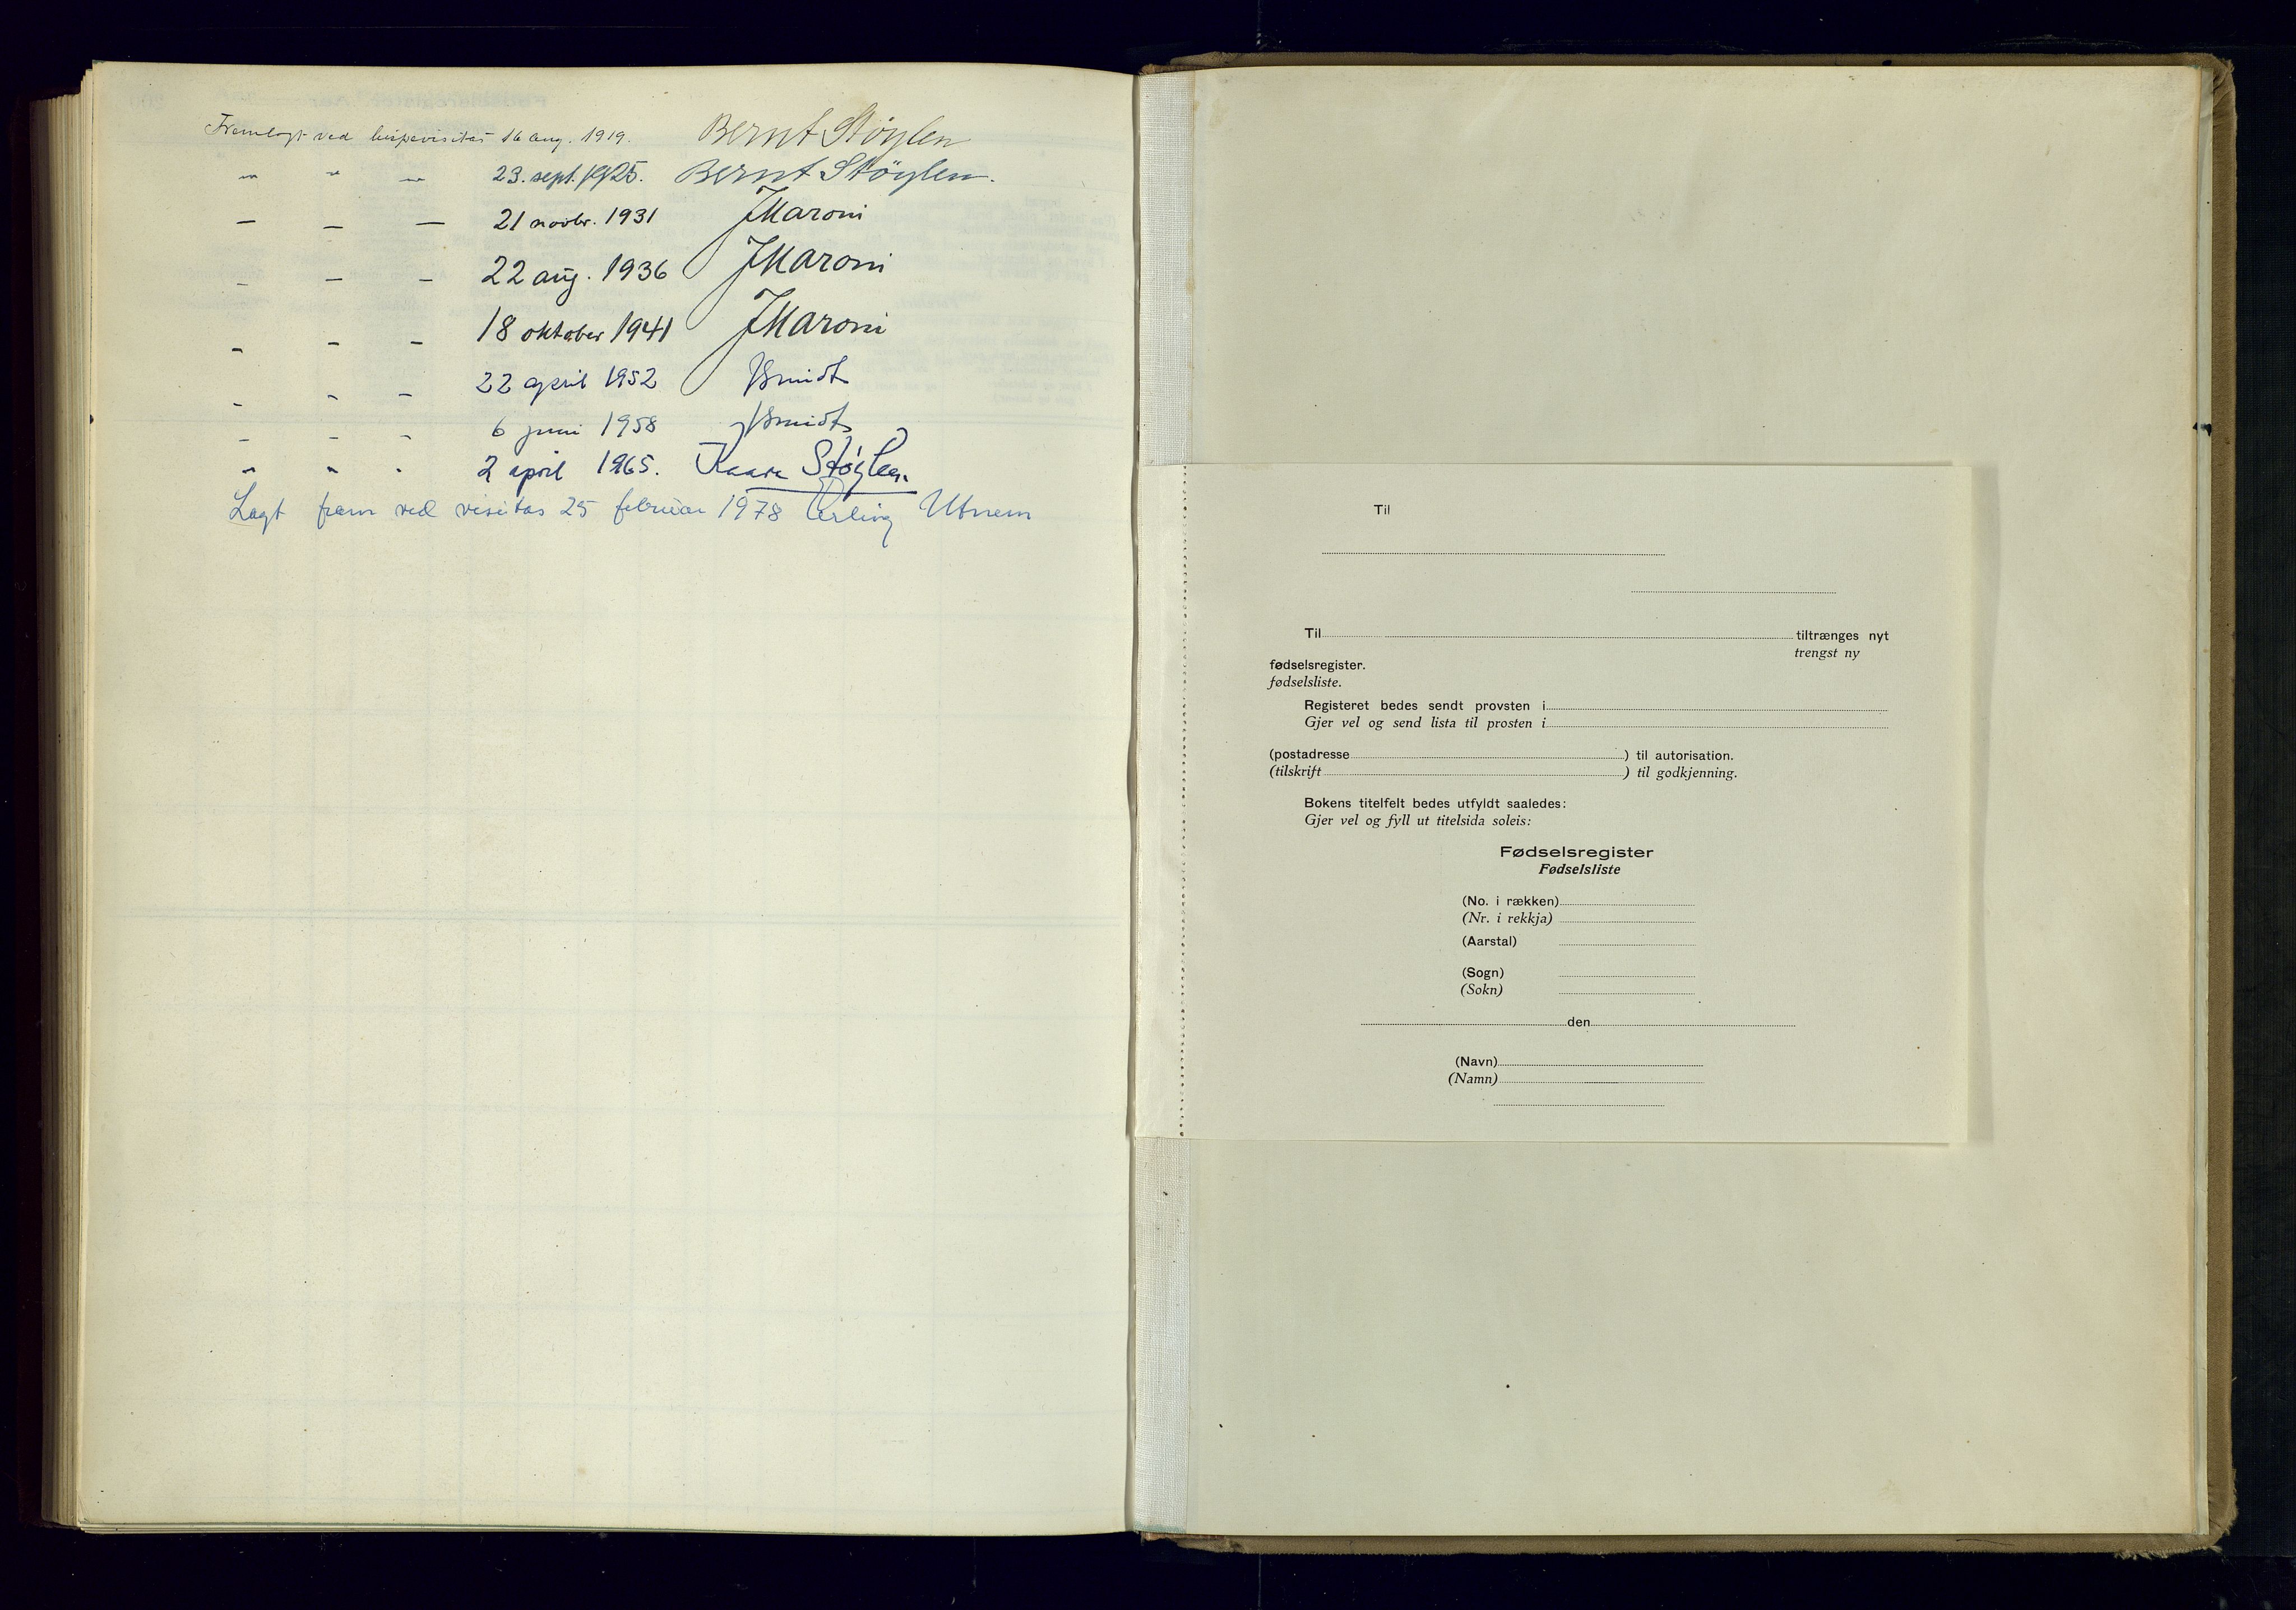 Fremlagt ved bispevisitas 16 aug. 1919. Bernt Støylen
" " " 23. sept. 1925. Bernt Støylen.
— — — 21 novbr. 1931 JMaroni
- - - 22 aug. 1936 JMaroni
- - - 18 oktober 1941 JMaroni
- - - 22 april 1952 JSmidt
- - - 6 juni 1958 JSmidt
" " " 2 april 1965. Kaare Støylen.
Lagt fram ved visitas 25 februar 1978 Erling Utnem
Til
Til tiltrænges nyt
trengst ny
fødselsregister.
fødselsliste.
Registeret bedes sendt provsten i
Gjer vel og send lista til prosten i
(postadresse ) til autorisation.
(tilskrift ) til godkjenning.
Bokens titelfelt bedes utfyldt saaledes:
Gjer vel og fyll ut titelsida soleis:
Fødselsregister
Fødselsliste
(No. i rækken)
(Nr. i rekkja)
(Aarstal)
(Sogn)
(Sokn)
den
(Navn)
(Namn)